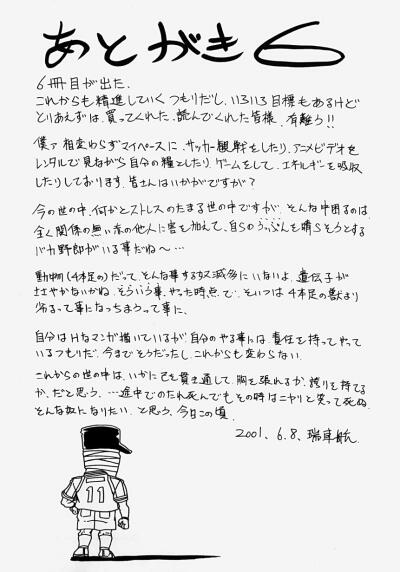 あとがき 6
6冊目が出た。
これからも精進していくつもりだし、いろいろ目標もあるけど
とりあえずは、買ってくれた、読んでくれた皆様、有難う!!
僕ァ相変わらずマイペースに、サッカー観戦をしたり、アニメビデオを
レンタルで見ながら自分の糧としたり、ゲームをして、エネルギーを吸収
したりしております。皆さんはいかがですが?
今の世の中、何かとストレスのたまる世の中ですが、そんな中困るのは
全く関係の無い赤の他人に害を加えて、自らのうっぷんを晴らそうとする
バカ野郎がいる事だね〜…
動物(4本足の)だって、そんな事する奴滅多にいないよ、遺伝子が
ささやかないかね、そういう事、やった時点で、そいつは4本足の獣より
劣るって事になっちまうって事に、
自分はHなマンガ描いているが自分のやる事には、責任を持ってやって
いるつもりだ、今までそうだったし、これからも変わらない、
これからの世の中は、いかに己を貫き通して、胸を張れるか、誇りを持てる
か、だと思う、…途中でのたれ死んでもその時はニヤリと笑って死ぬ、
そんな奴になりたい、と思う、今日この頃、
2001、6.8、瑞車
11